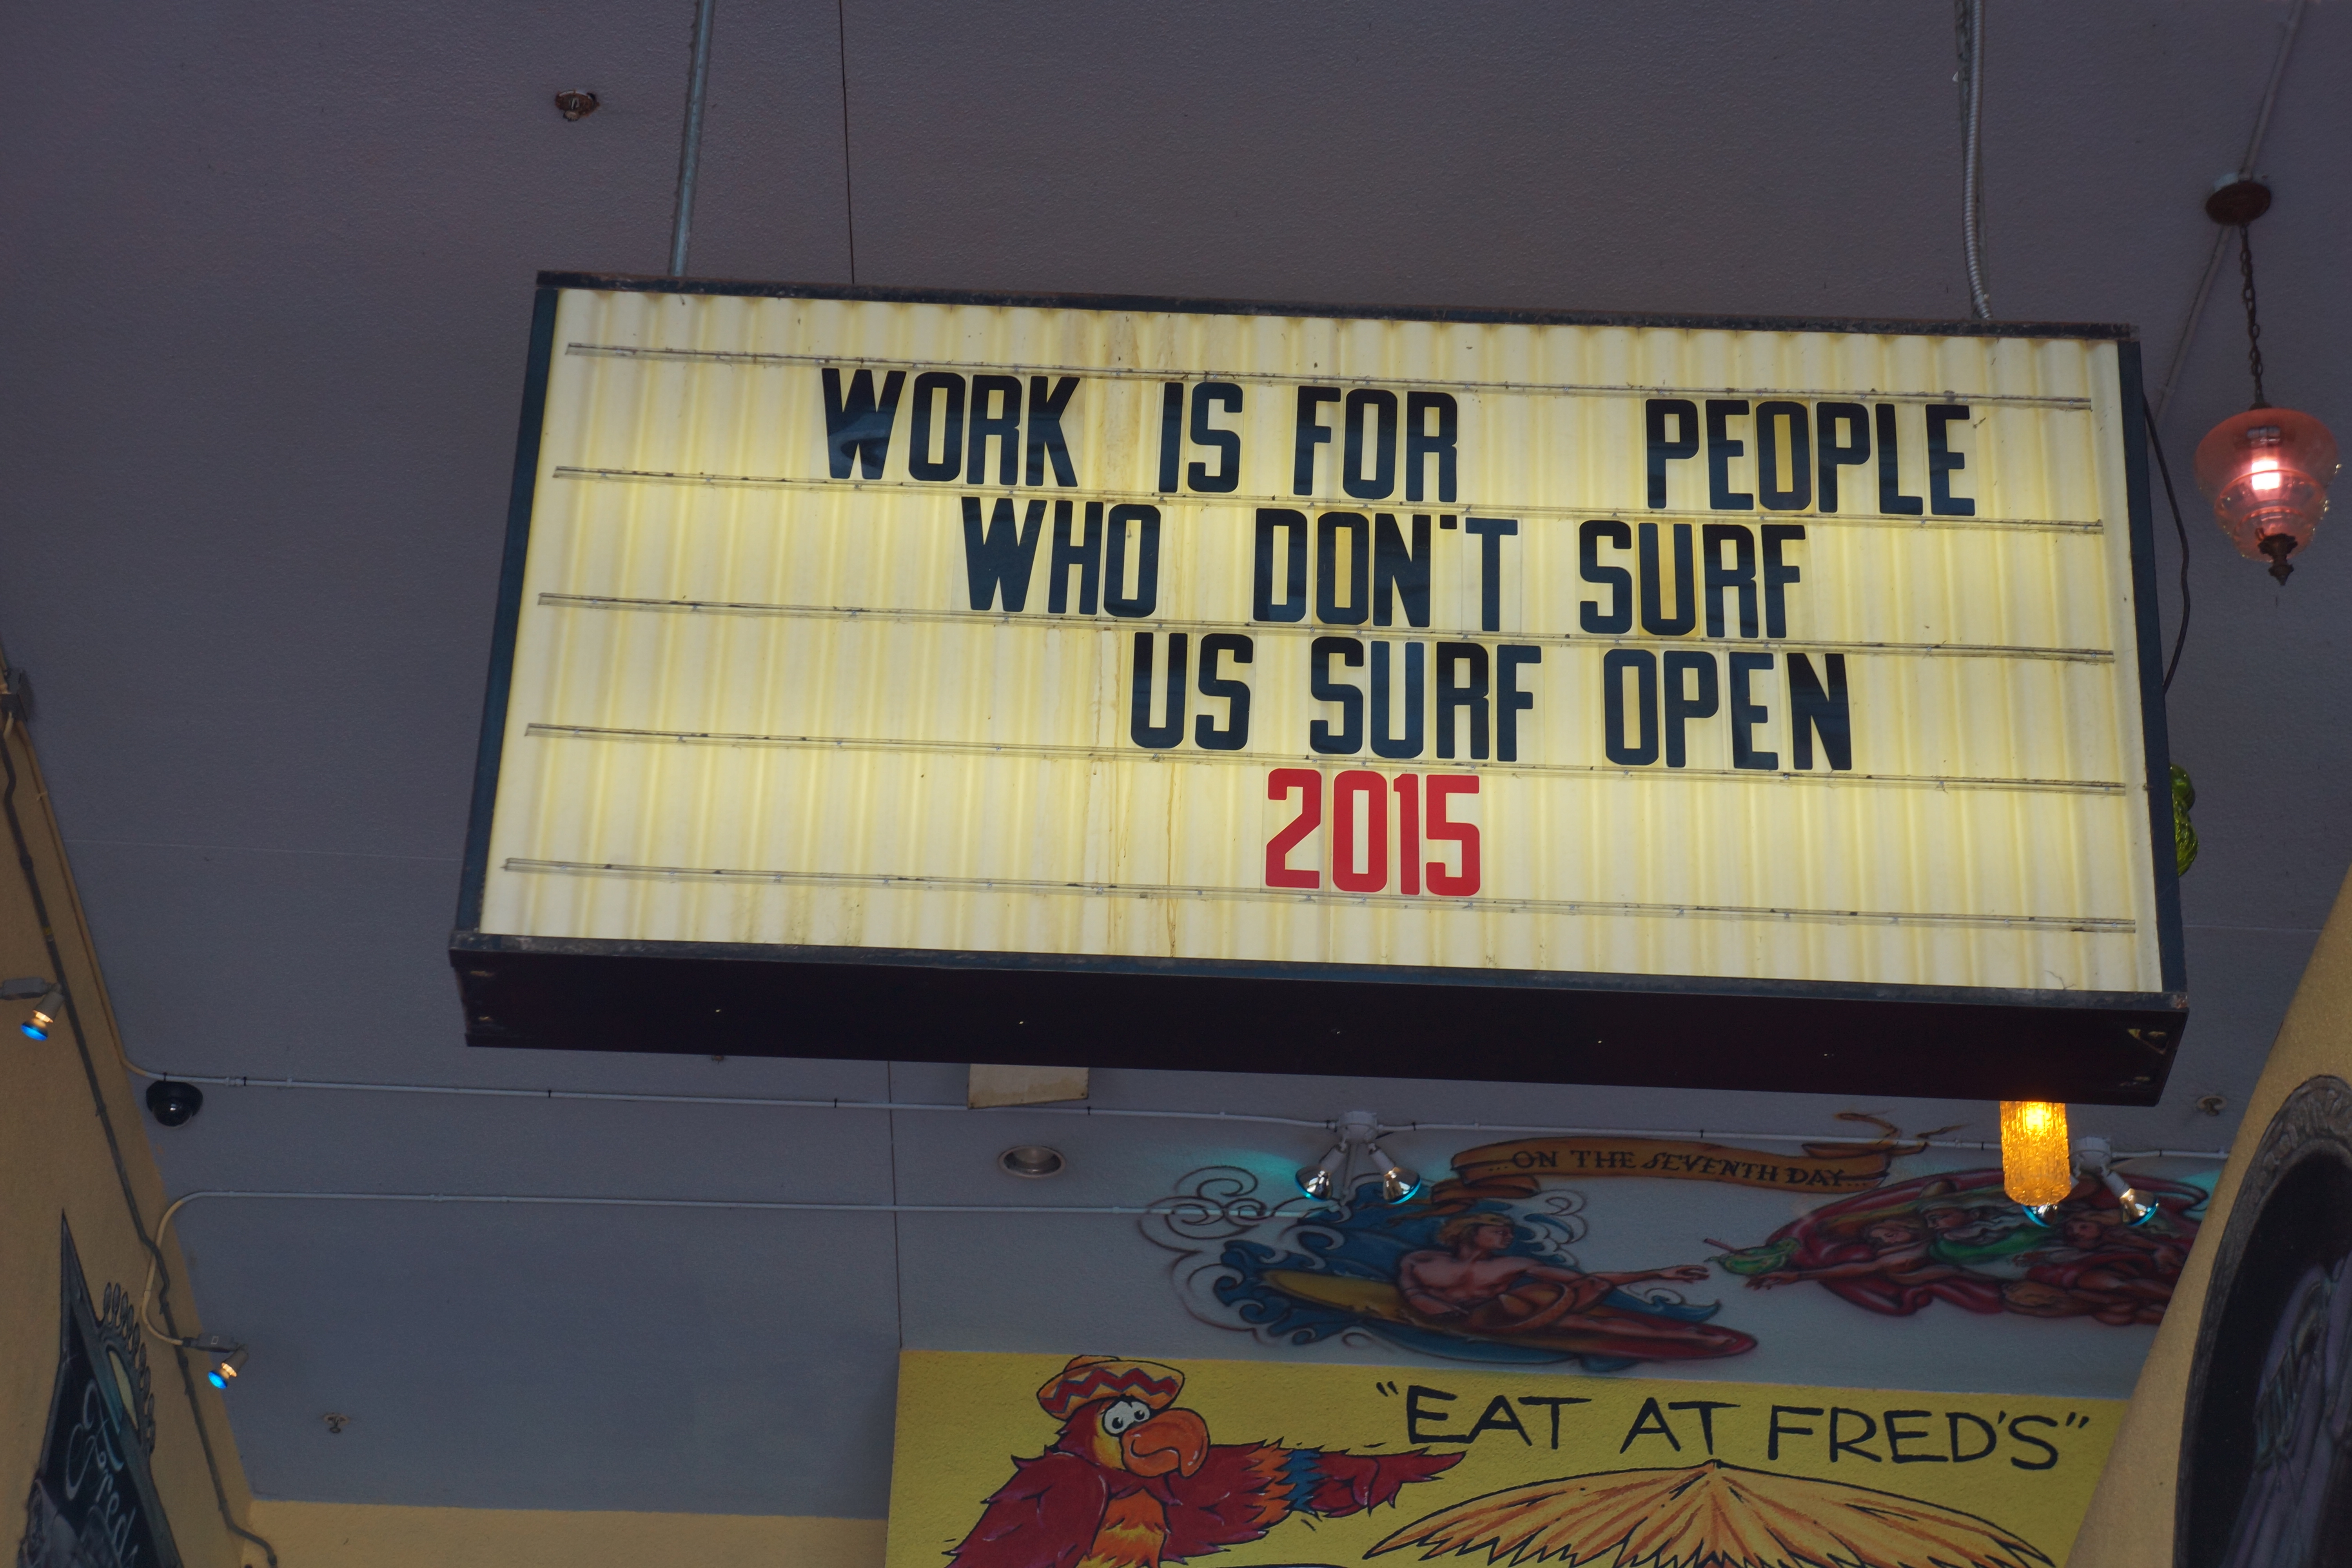 WORK IS FOR PEOPLE
WHO DON'T SURF
US SURF OPEN
2015
...ON THE SEVENTH DAY...
"EAT AT FRED'S"
Fred